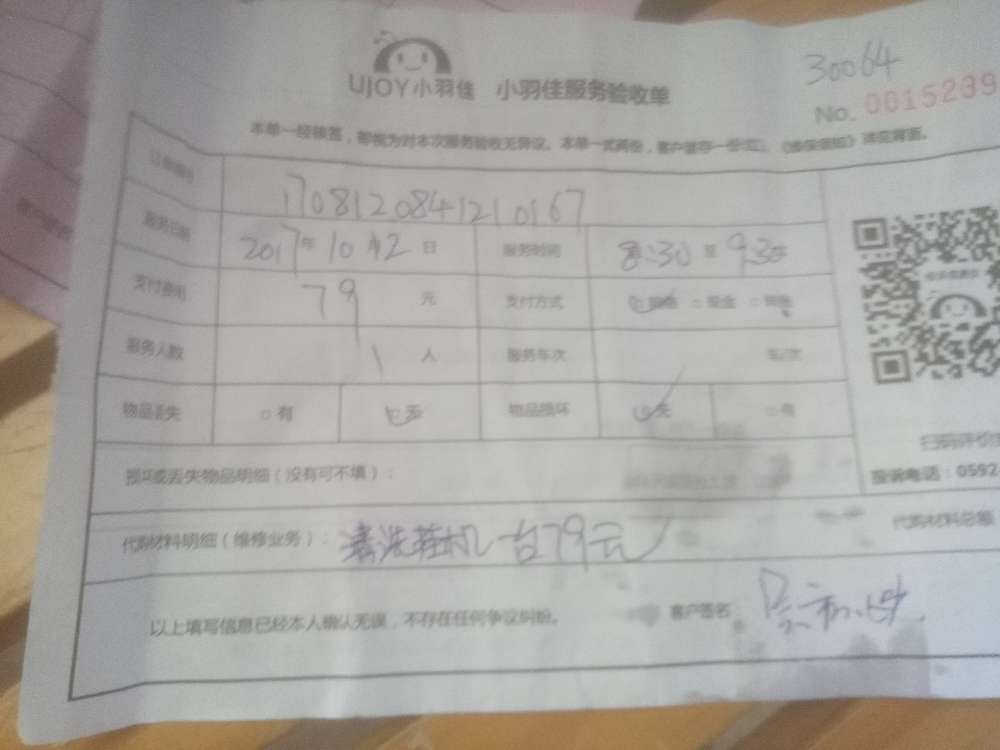 30064
UJOY小羽佳 小羽佳服务验收单
No. 0015239
本单一经核签，即视为对本次服务验收无异议。本单一式两份，客户留存一份
详见背面。
订单编号 1708120841210167
服务日期 2017年10月12日 服务时间 8:30至9:30
支付费用 79元 支付方式 □现金
服务人数 1人 服务车次 车/次
物品丢失 □有 □无 物品损坏 □无 □有
损坏或丢失物品明细（没有可不填）：
扫码评价
投诉电话：0592
代购材料明细（维修业务）：清洗 机一台79元
代购材料总额
以上填写信息已经本人确认无误，不存在任何争议纠纷。 客户签名